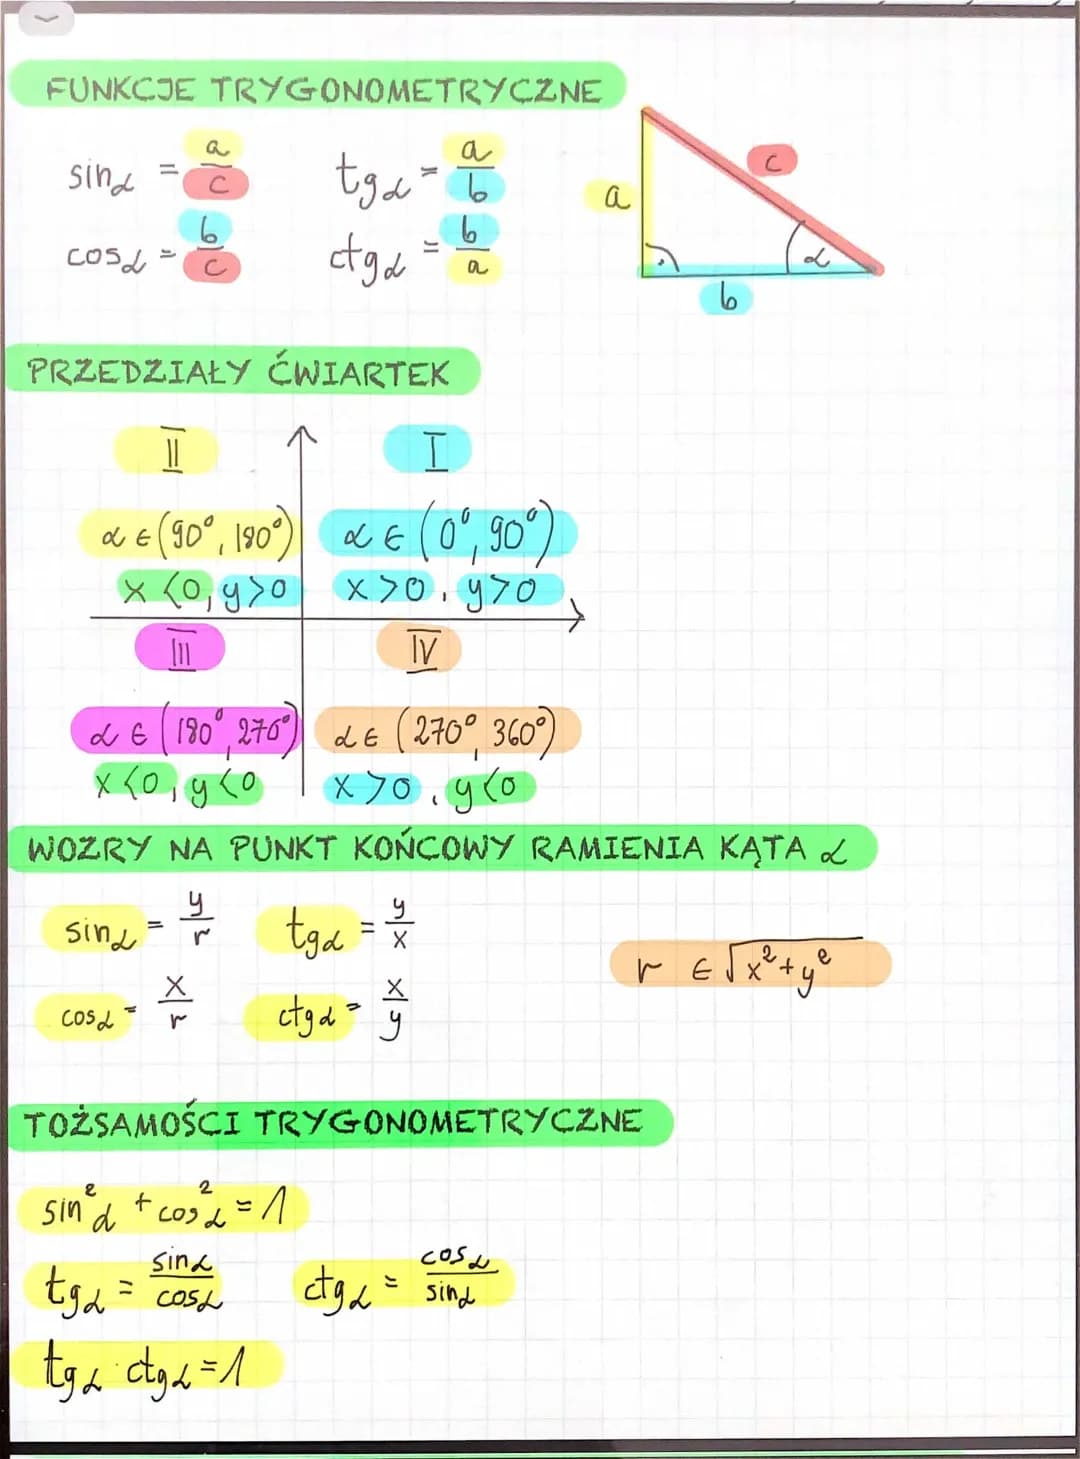 FUNKCJE TRYGONOMETRYCZNE
sinα = a/c
tgα = a/b
cosα = b/c
ctgα = b/a
a
c
α
b
PRZEDZIAŁY ĆWIARTEK
II
I
α ∈ (90°, 180°)
α ∈ (0°, 90°)
x <0, y>0
x >0, y>0
III
IV
α ∈ (180°, 270°)
α ∈ (270°, 360°)
x <0, y <0
x >0, y<0
WOZRY NA PUNKT KOŃCOWY RAMIENIA KĄTA α
sinα = y/r
tgα = y/x
r ∈ √x²+y²
cosα = x/r
ctgα = x/y
TOŻSAMOŚCI TRYGONOMETRYCZNE
sin²α + cos²α = 1
tgα = sinα/cosα
ctgα = cosα/sinα
tgα · ctgα = 1